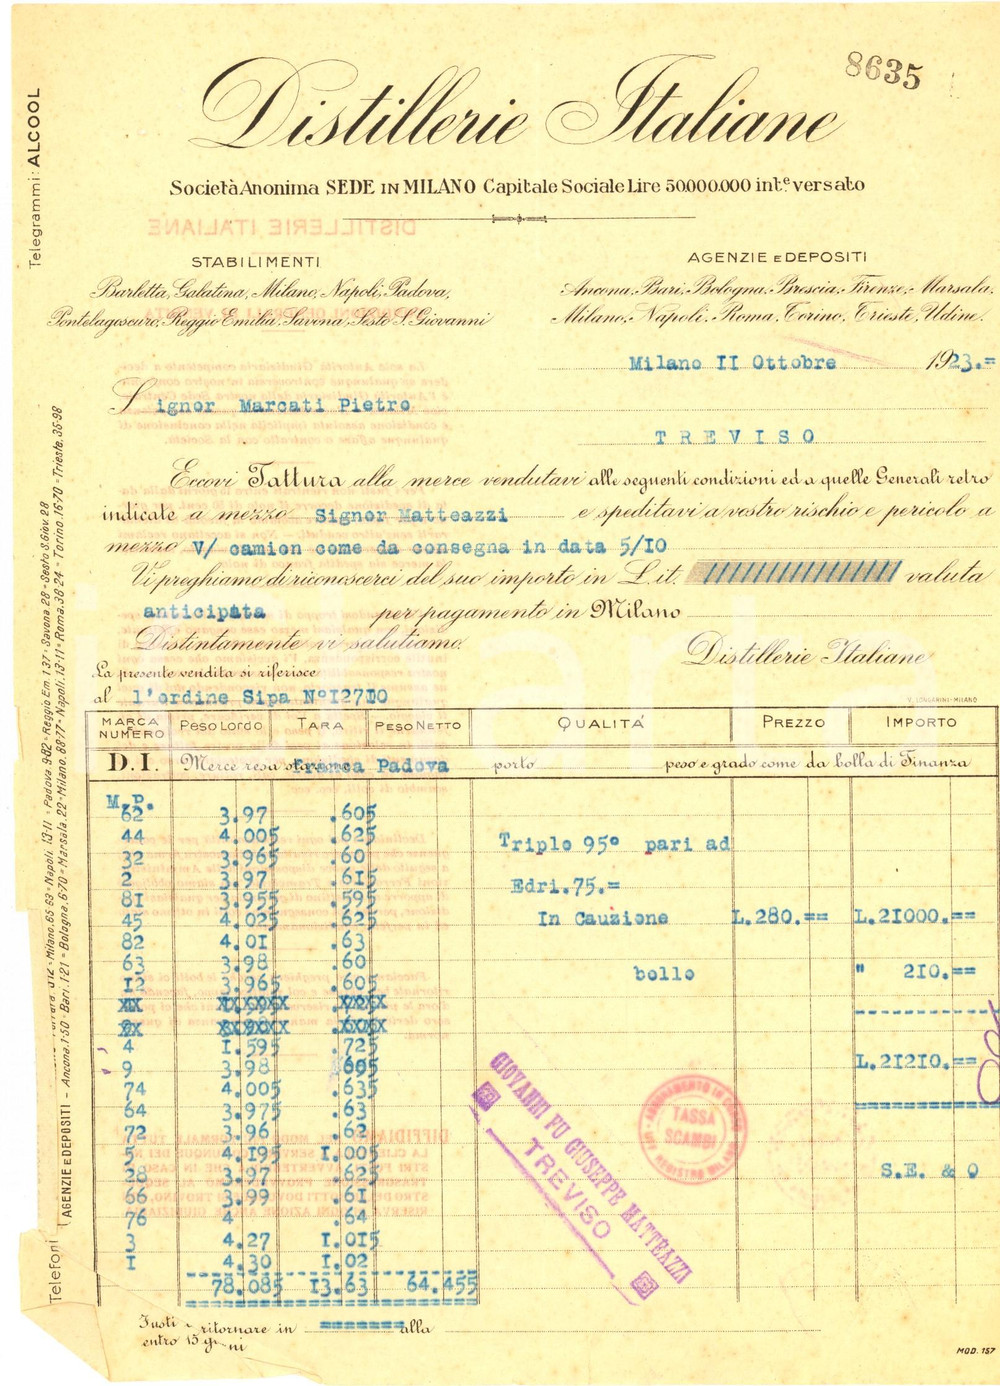 8635
Distillerie Italiane
Società Anonima SEDE IN MILANO Capitale Sociale Lire 50.000.000 int.e versato
Telegrammi: ALCOOL
STABILIMENTI
Barletta, Galatina, Milano, Napoli, Padova,
Pontelagoscuro, Reggio Emilia, Savona, Sesto S. Giovanni
AGENZIE E DEPOSITI
Ancona, Bari, Bologna, Brescia, Firenze, Marsala,
Milano, Napoli, Roma, Torino, Trieste, Udine.
Milano II Ottobre 1923.=
Signor Marcati Pietro
TREVISO
Eccovi Fattura alla merce vendutavi alle seguenti condizioni ed a quelle Generali retro
indicate a mezzo Signor Matteazzi e speditavi a vostro rischio e pericolo a
mezzo V/ camion come da consegna in data 5/IO
Vi preghiamo di riconoscerci del suo importo in L.it. //////////////// valuta
anticipata per pagamento in Milano
Distintamente vi salutiamo.
Distillerie Italiane
La presente vendita si riferisce
al l'ordine Sipa N°I27IO
V. LONGARINI-MILANO
MARCA E NUMERO PESO LORDO TARA PESO NETTO QUALITÀ PREZZO IMPORTO
D.I. Merce resa Franca Padova porto peso e grado come da bolla di Finanza
M.P.
62 3.97 .605
44 4.005 .625
32 3.965 .60
2 3.97 .615
8I 3.955 .595
45 4.025 .625
82 4.0I .63
63 3.98 .60
I2 3.965 .605
4 I.595 .725
9 3.98 .605
74 4.005 .635
64 3.975 .63
72 3.96 .62
5 4.I95 I.005
28 3.97 .625
66 3.99 .6I
76 4 .64
3 4.27 I.0I5
I 4.30 I.02
78.085 I3.63 64.455
Triplo 95° pari ad
Edri.75.=
In Cauzione L.280.== L.2I000.==
bollo " 2I0.==
L.2I2I0.==
S.E. & O
GIOVANNI FU GIUSEPPE MATTEAZZI
TREVISO
TASSA
SCAMBI
Fusti a ritornare in ======== alla
entro 15 giorni
MOD. 157
Telefoni
AGENZIE E DEPOSITI - Ancona.1-50 - Bari.1-21 - Bologna.6-70 - Marsala.22 - Milano.88-77 - Napoli.13-11 - Roma.38-24 - Torino.16-70 - Trieste.35-98
Milano.65-83 - Napoli.13-11 - Padova 9-82 - Reggio Em.1-37 - Savona 28 - Sesto S.Giov. 28